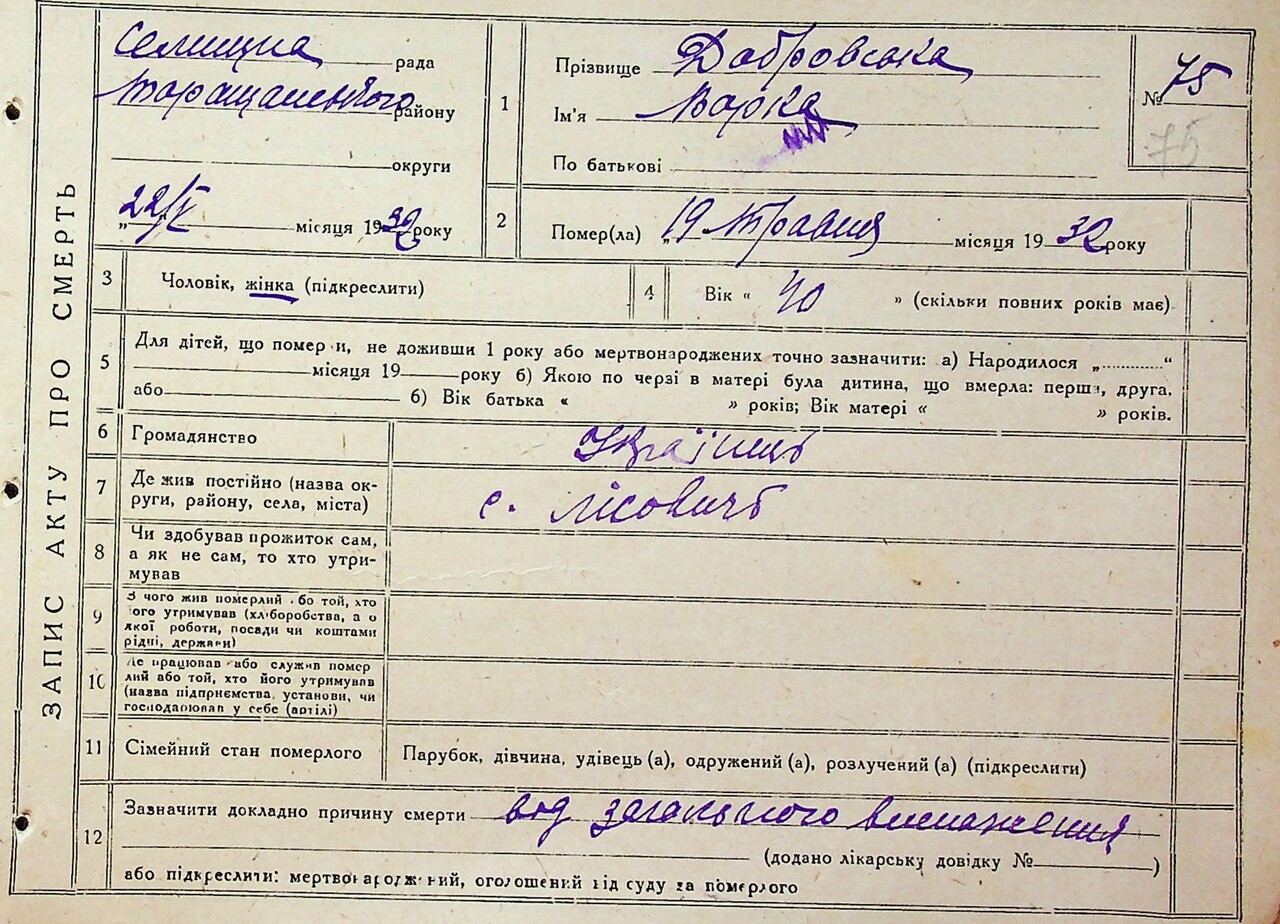 ЗАПИС АКТУ ПРО СМЕРТЬ
Селищна рада
району
округи
„22/V місяця 1932 року
1
Прізвище Добровська
Ім'я Варка
По батькові
№ 75
75
2
Помер(ла) „19 Травня місяця 1932 року
3
Чоловік, жінка (підкреслити)
4
Вік « 40 » (скільки повних років має)
5
Для дітей, що помер и, не доживши 1 року або мертвонароджених точно зазначити: а) Народилося „............“
місяця 19 року б) Якою по черзі в матері була дитина, що вмерла: перша, друга,
або б) Вік батька « » років; Вік матері « » років.
6
Громадянство
Українець
7
Де жив постійно (назва ок-
руги, району, села, міста)
с. Лісовичі
8
Чи здобував прожиток сам,
а як не сам, то хто утри-
мував
9
З чого жив померлий або той, хто
його утримував (хліборобства, а о
якої роботи, посади чи коштами
рідні, держави)
10
Де працював або служив помер
лий або той, хто його утримував
(назва підприємства, установи, чи
господарював у себе (артілі)
11
Сімейний стан померлого
Парубок, дівчина, удівець (а), одружений (а), розлучений (а) (підкреслити)
12
Зазначити докладно причину смерти від загального виснаження
(додано лікарську довідку № )
або підкреслити: мертвонароджений, оголошений від суду за померлого